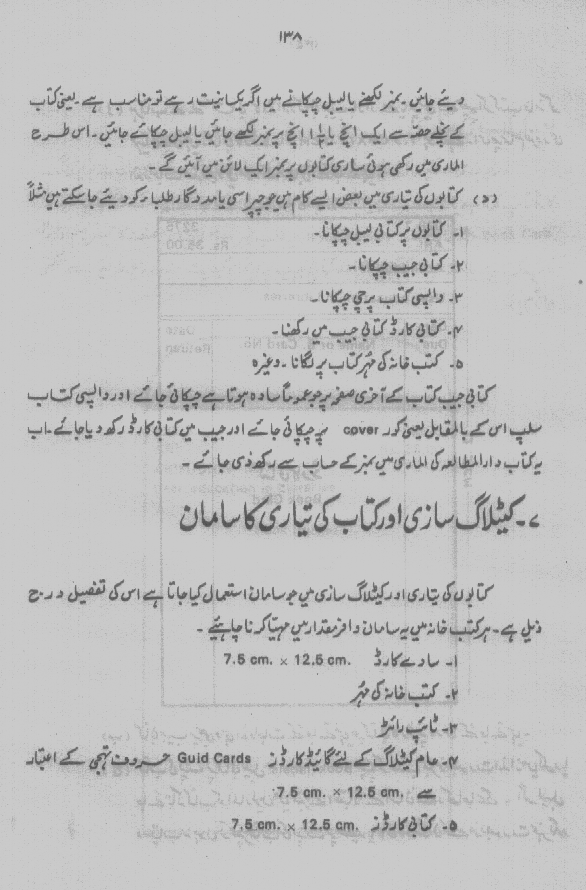 ۱۳۸
دیئے جائیں۔ نمبر لکھنے یا لیبل چپکانے میں اگر یکسانیت رہے تو مناسب ہے۔ یعنی کتاب
کے نچلے حصہ سے ایک انچ یا ۱½ انچ پر نمبر لکھے جائیں یا لیبل چپکائے جائیں۔ اس طرح
الماری میں رکھی ہوئی ساری کتابوں پر نمبر ایک لائن میں آئیں گے۔
(د) کتابوں کی تیاری میں بعض ایسے کام ہیں جو چپراسی یا مددگار طلباء کو دیئے جاسکتے ہیں مثلاً
۱۔ کتابوں پر کتابی لیبل چپکانا۔
۲۔ کتابی جیب چپکانا۔
۳۔ واپسی کتاب پرچی چپکانا۔
۴۔ کتابی کارڈ کتابی جیب میں رکھنا۔
۵۔ کتب خانہ کی مُہر کتاب پر لگانا۔ وغیرہ
کتابی جیب کتاب کے آخری صفحہ پر جو عموماً سادہ ہوتا ہے چپکائی جائے اور واپسی کتاب
سلپ اس کے بالمقابل یعنی کور cover پر چپکائی جائے اور جیب میں کتابی کارڈ رکھ دیا جائے۔ اب
یہ کتاب دارالمطالعہ کی الماری میں نمبر کے حساب سے رکھ دی جائے۔
۷۔ کیٹلاگ سازی اور کتاب کی تیاری کا سامان
کتابوں کی تیاری اور کیٹلاگ سازی میں جو سامان استعمال کیا جاتا ہے اس کی تفصیل درج
ذیل ہے۔ ہر کتب خانہ میں یہ سامان وافر مقدار میں مہیّا کرنا چاہیئے۔
۱۔ سادے کارڈ 7.5 cm. × 12.5 cm.
۲۔ کتب خانہ کی مُہر
۳۔ ٹائپ رائٹر
۴۔ عام کیٹلاگ کے لئے گائیڈ کارڈز Guid Cards حروف تہجی کے اعتبار
سے 7.5 cm. × 12.5 cm.
۵۔ کتابی کارڈز 7.5 cm. × 12.5 cm.